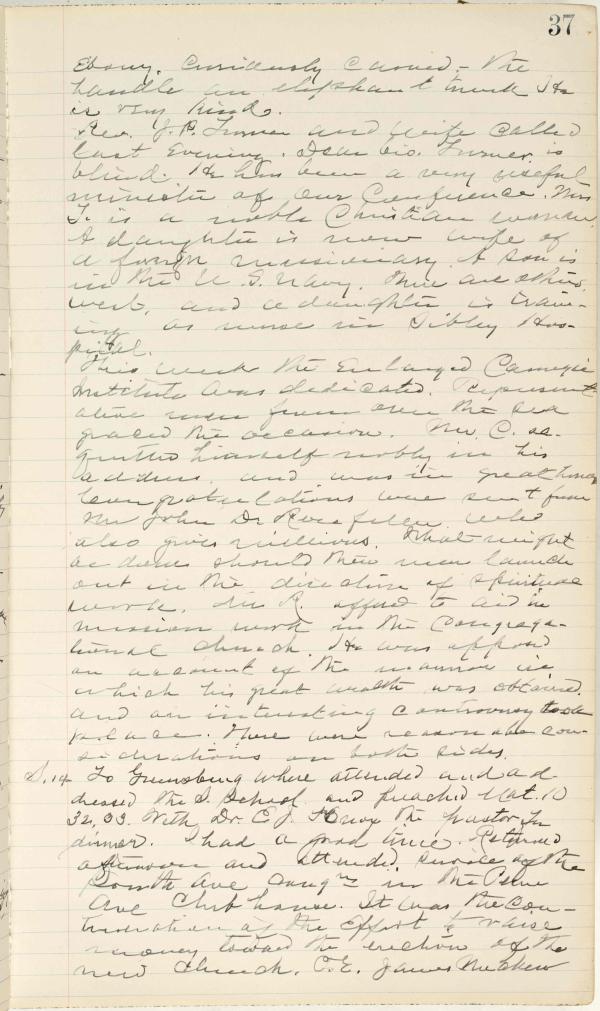 37
Ebony. Curiously carved,- the
handle an elephant trunk He
is very kind.
Rev. J. B. Turner and wife called
last Evening. Dear bro. Turner is
blind. He has been a very useful
minister of our Conference. Mrs
T. is a noble Christian woman
A daughter is now wife of
a foreign missionary. A son is
in the U. S. Navy. Three are
west, and a daughter is train-
ing as nurse in Sibley Hos-
pital.
This week the Enlarged Carnegie
Institute was dedicated. Represent-
ative men from over the sea
graced the occasion. Mr. C. ac-
quitted himself nobly in his
address, and was in great
Congratulations were sent from
Mr John D. Rockefeller who
also gives millions. What might
be done should these men launch
out in the direction of spiritual
work. Mr R. offered to aid in
mission work in the Congrega-
tional church. He was opposed
on account of the manner in
which his great wealth was obtained.
and an interesting controversy took
place. There were reasonable con-
siderations on both sides.
S. 14 To Greensburg where attended and ad-
dressed the S. School and preached Mat. 10
32, 33. With Dr. E. J. the pastor In
dinner. I had a good time. Returned
afternoon and attended service of the
South Ave congn in the Penn
Ave Club house. It was the con-
tinuation of the effort to raise
money toward the erection of the
new church. C. E. James